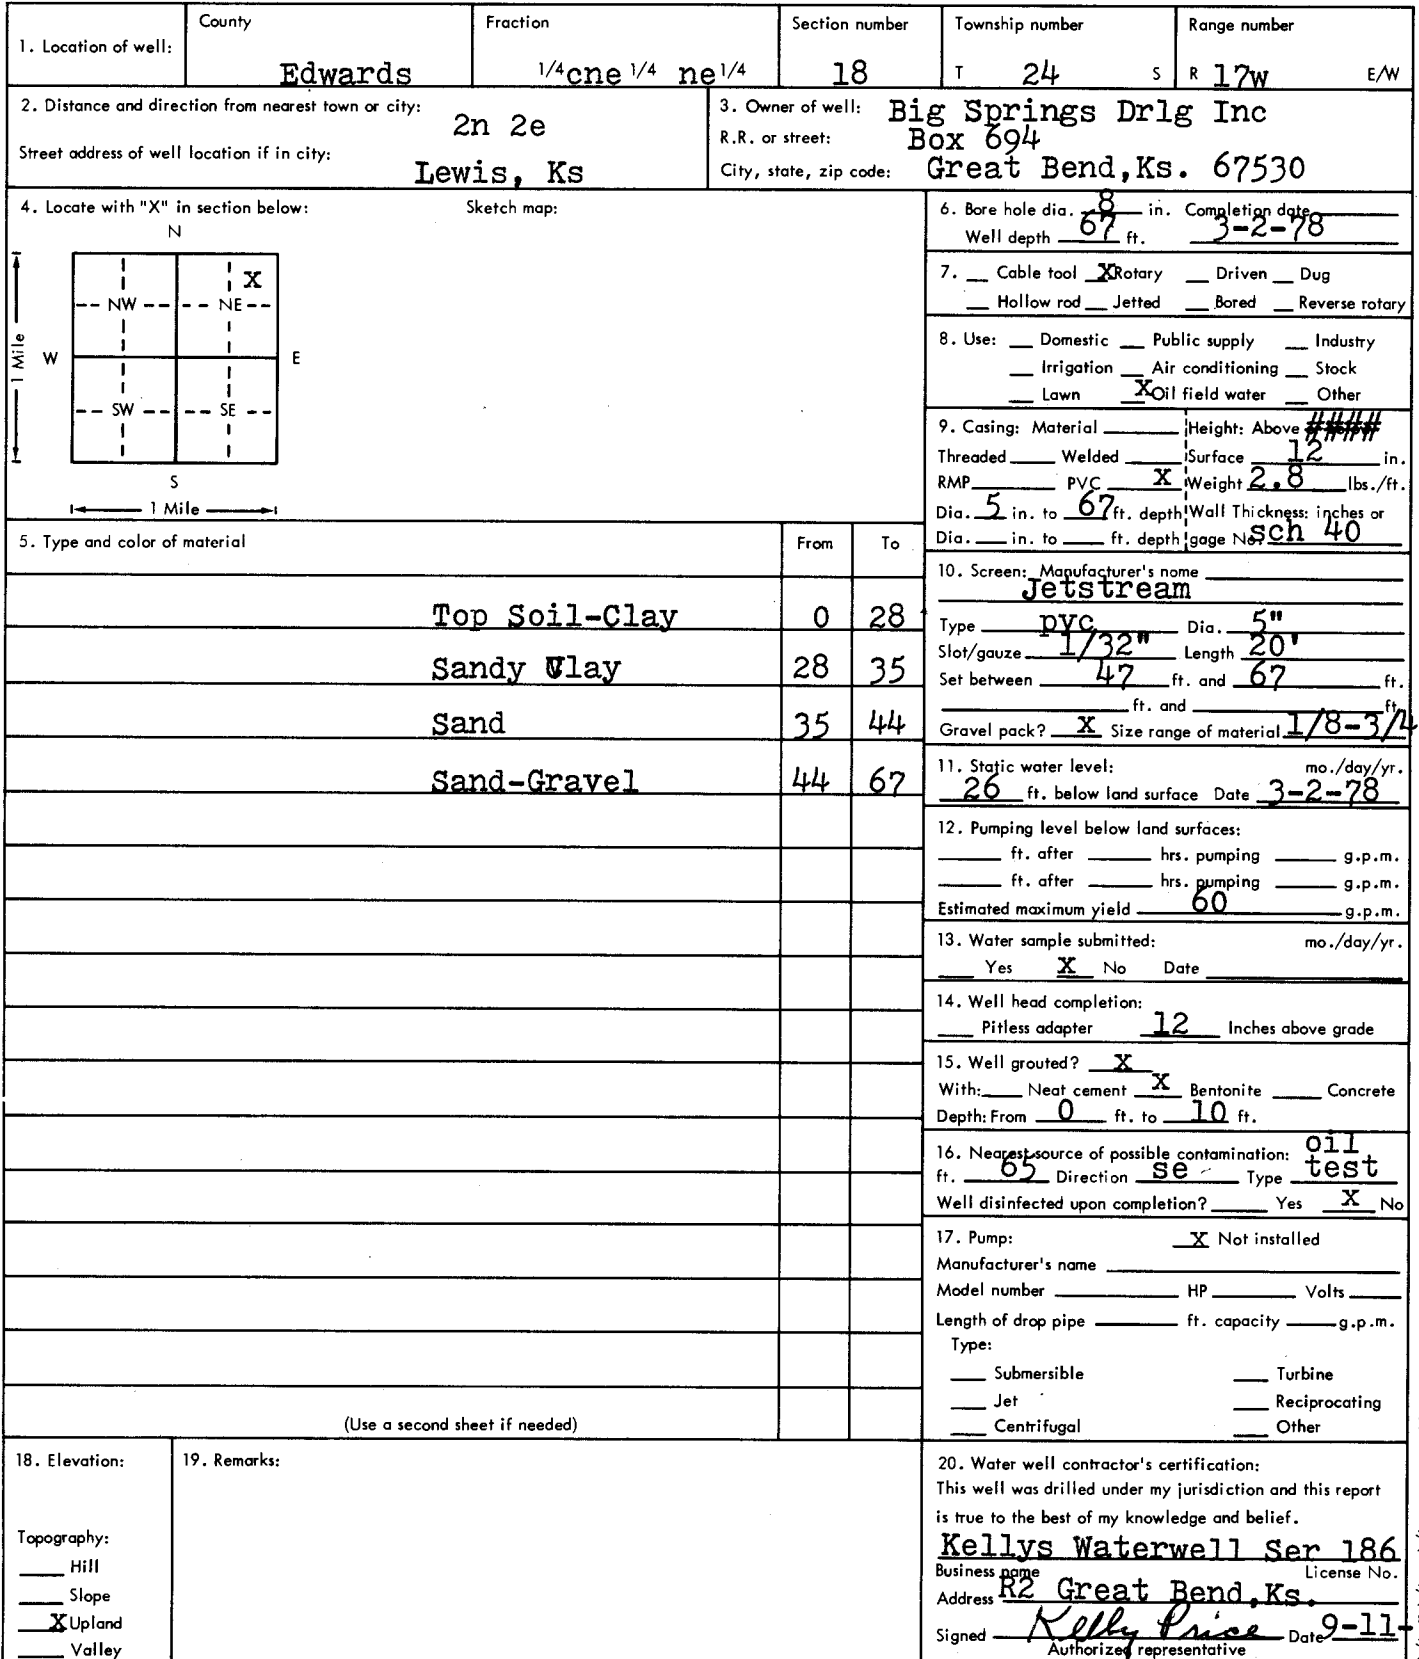 1. Location of well:
County
Edwards
Fraction
1/4 cne 1/4 ne 1/4
Section number
18
Township number
T 24 S
Range number
R 17w E/W
2. Distance and direction from nearest town or city:
2n 2e
Street address of well location if in city:
Lewis, Ks
3. Owner of well: Big Springs Drlg Inc
R.R. or street: Box 694
City, state, zip code: Great Bend,Ks. 67530
4. Locate with "X" in section below: Sketch map:
N
X
NW NE
1 Mile W E
SW SE
S
1 Mile
5. Type and color of material From To
Top Soil-Clay 0 28
Sandy Clay 28 35
Sand 35 44
Sand-Gravel 44 67
(Use a second sheet if needed)
6. Bore hole dia. 8 in. Completion date
Well depth 67 ft. 3-2-78
7. __ Cable tool X Rotary __ Driven __ Dug
__ Hollow rod __ Jetted __ Bored __ Reverse rotary
8. Use: __ Domestic __ Public supply __ Industry
__ Irrigation __ Air conditioning __ Stock
__ Lawn X Oil field water __ Other
9. Casing: Material ____ Height: Above ####
Threaded ___ Welded ___ Surface 12 in.
RMP ____ PVC X Weight 2.8 lbs./ft.
Dia. 5 in. to 67 ft. depth Wall Thickness: inches or
Dia. ___ in. to ___ ft. depth gage No. sch 40
10. Screen: Manufacturer's name
Jetstream
Type pvc Dia. 5"
Slot/gauze 1/32" Length 20'
Set between 47 ft. and 67 ft.
____ ft. and ____ ft.
Gravel pack? X Size range of material 1/8-3/4
11. Static water level: mo./day/yr.
26 ft. below land surface Date 3-2-78
12. Pumping level below land surfaces:
____ ft. after ____ hrs. pumping ____ g.p.m.
____ ft. after ____ hrs. pumping ____ g.p.m.
Estimated maximum yield 60 g.p.m.
13. Water sample submitted: mo./day/yr.
__ Yes X No Date ____
14. Well head completion:
__ Pitless adapter 12 Inches above grade
15. Well grouted? X
With: ___ Neat cement X Bentonite ___ Concrete
Depth: From 0 ft. to 10 ft.
16. Nearest source of possible contamination: oil
ft. 65 Direction se Type test
Well disinfected upon completion? ___ Yes X No
17. Pump: X Not installed
Manufacturer's name ____
Model number ____ HP ____ Volts ____
Length of drop pipe ____ ft. capacity ____ g.p.m.
Type:
__ Submersible __ Turbine
__ Jet __ Reciprocating
__ Centrifugal __ Other
18. Elevation:
Topography:
__ Hill
__ Slope
X Upland
__ Valley
19. Remarks:
20. Water well contractor's certification:
This well was drilled under my jurisdiction and this report
is true to the best of my knowledge and belief.
Kellys Waterwell Ser 186
Business name License No.
Address R2 Great Bend,Ks.
Signed Kelly Price Date 9-11-
Authorized representative